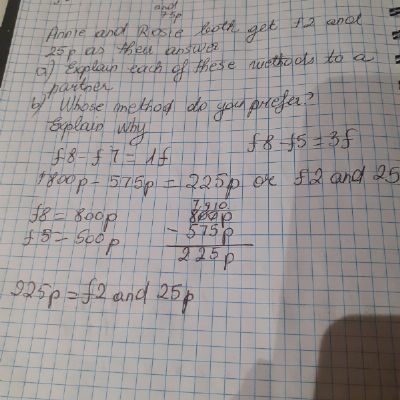 and
75p
Annie and Rosie both get £2 and
25p as their answer
a) Explain each of these methods to a
partner
b) Whose method do you prefer?
Explain why
£8 - £5 = 3£
£8 - £7 = 1£
800p - 575p = 225p or £2 and 25
£8 = 800p
7 9 10
800p
£5 = 500p
- 575p
225p
225p = £2 and 25p